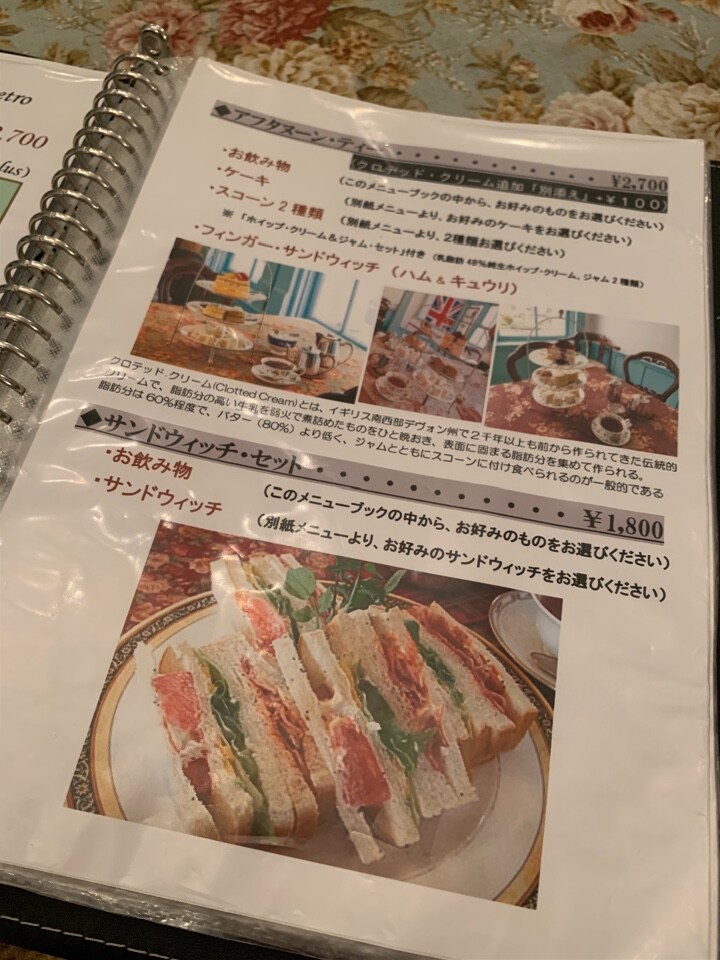 etro
,700
lus)
◆アフタヌーン・ティー・・・・・・・・・・・・¥2,700
(クロテッド・クリーム追加「別添え」+¥100)
・お飲み物 (このメニューブックの中から、お好みのものをお選びください)
・ケーキ (別紙メニューより、お好みのケーキをお選びください)
・スコーン2種類 (別紙メニューより、2種類お選びください)
※「ホイップ・クリーム&ジャム・セット」付き (乳脂肪48%純生ホイップ・クリーム、ジャム2種類)
・フィンガー・サンドウィッチ (ハム & キュウリ)
クロテッド・クリーム(Clotted Cream)とは、イギリス南西部デヴォン州で2千年以上も前から作られてきた伝統的
クリームで、脂肪分の高い牛乳を弱火で煮詰めたものをひと晩おき、表面に固まる脂肪分を集めて作られる。
脂肪分は60%程度で、バター(80%)より低く、ジャムとともにスコーンに付け食べられるのが一般的である
◆サンドウィッチ・セット・・・・・・・・・・・¥1,800
・お飲み物 (このメニューブックの中から、お好みのものをお選びください)
・サンドウィッチ (別紙メニューより、お好みのサンドウィッチをお選びください)